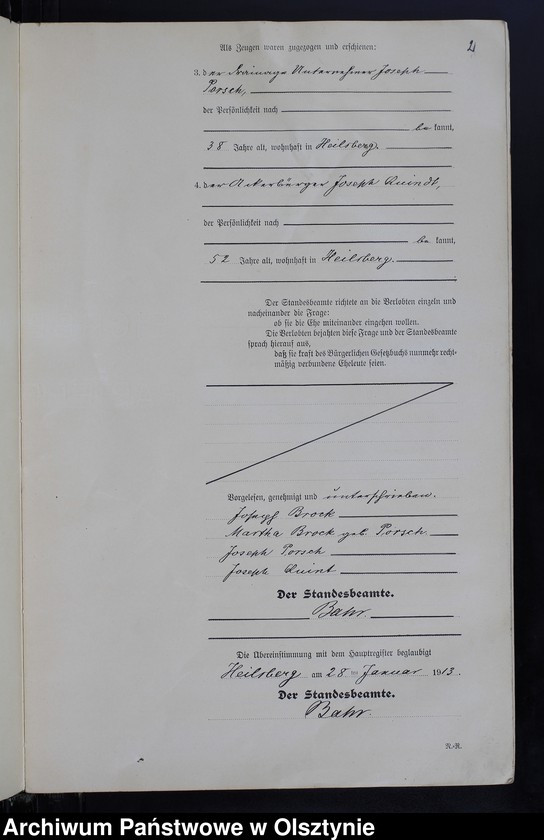 2
Als Zeugen waren zugezogen und erschienen:
3. der Drainage Unternehmer Joseph
Porsch,
der Persönlichkeit nach
be kannt,
38 Jahre alt, wohnhaft in Heilsberg.
4. der Ackerbürger Joseph Quindt,
der Persönlichkeit nach
be kannt,
52 Jahre alt, wohnhaft in Heilsberg.
Der Standesbeamte richtete an die Verlobten einzeln und
nacheinander die Frage:
ob sie die Ehe miteinander eingehen wollen.
Die Verlobten bejahten diese Frage und der Standesbeamte
sprach hierauf aus,
daß sie kraft des Bürgerlichen Gesetzbuchs nunmehr recht-
mäßig verbundene Eheleute seien.
Vorgelesen, genehmigt und unterschrieben.
Joseph Brock
Martha Brock geb. Porsch.
Joseph Porsch
Joseph Quint
Der Standesbeamte.
Bahr.
Die Übereinstimmung mit dem Hauptregister beglaubigt
Heilsberg am 28 ten Januar 1913.
Der Standesbeamte.
Bahr.
R.-R.
Archiwum Państwowe w Olsztynie